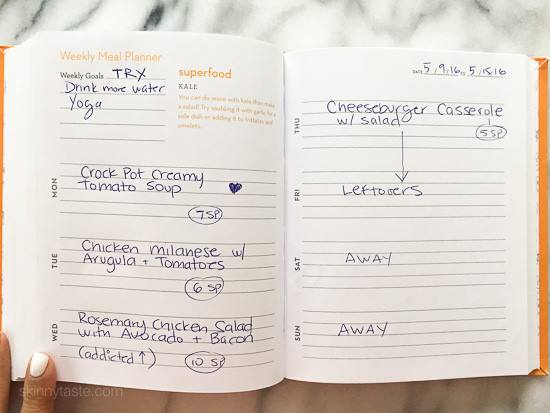 Weekly Meal Planner
Weekly Goals TRY
Drink more water
Yoga
superfood
KALE
You can do more with kale than make
a salad! Try sautéing it with garlic for a
side dish or adding it to frittatas and
omelets.
MON
Crock Pot Creamy
Tomato Soup
7 SP
TUE
Chicken milanese w/
Arugula + Tomatoes
6 SP
WED
Rosemary Chicken Salad
with Avocado + Bacon
(addicted ↑) 10 SP
skinnytaste.com
DATE 5/9/16 TO 5/15/16
THU
Cheeseburger Casserole
w/ salad
5 SP
FRI
Leftovers
SAT
AWAY
SUN
AWAY